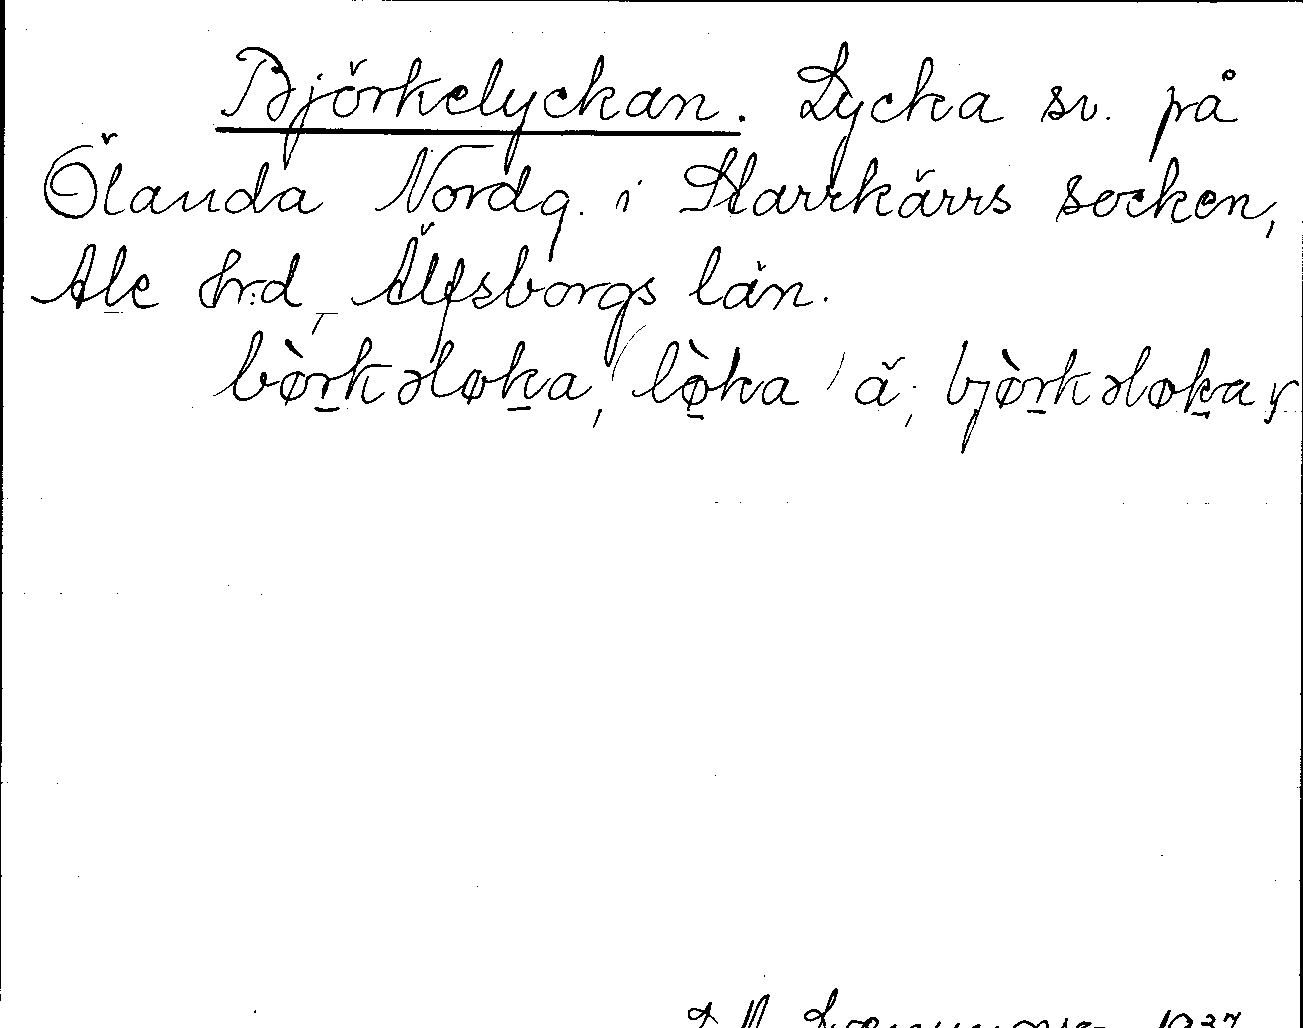 Björkelyckan. Lycka sv. på
Ölanda Nordg. i Starrkärrs socken,
Ale hrd, Älfsborgs län.
bò̱rkəløḵa, (lø̱̀ka) ä; bjø̀ṟkələḵaṛ
1937